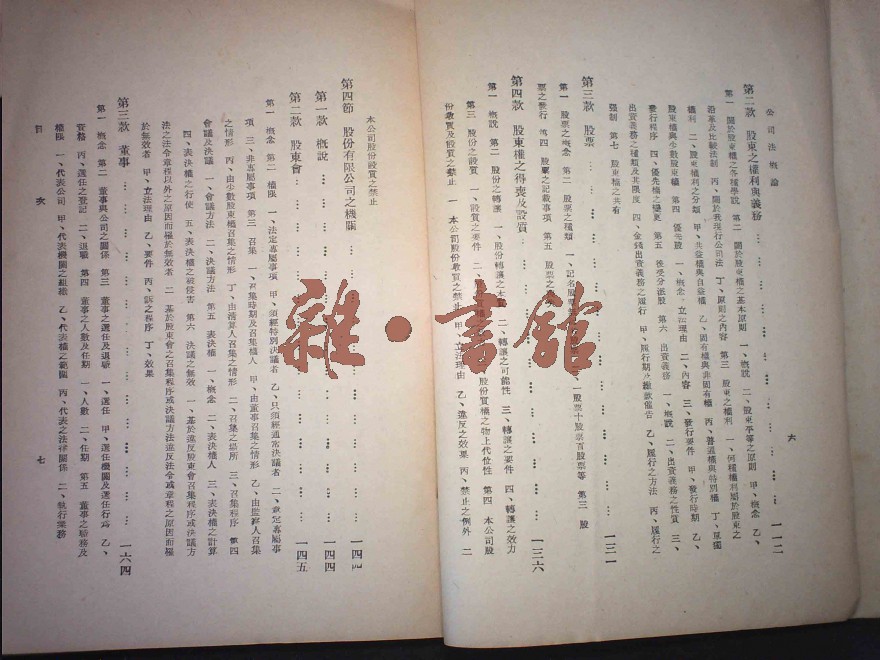 公司法概論
六
第二款 股東之權利與義務 一一二
第一 關於股東權之各種學說 第二 關於股東權之基本原則 一、概說 二、股東平等之原則 甲、概念 乙、
沿革及比較法制 丙、關於我現行公司法 丁、原則之內容 第三 股東之權利 一、何種權利屬於股東之
權利 二、股東權利之分類 甲、共益權與自益權 乙、固有權與非固有權 丙、普通權與特別權 丁、單獨
股東權與少數股東權 第四 優先股 一、概念、立法理由 二、內容 三、發行要件 甲、發行時期 乙、
發行程序 四、優先權之變更 第五 後受分派股 第六 出資義務 一、概說 二、出資義務之性質 三、
出資義務之種類及其限度 四、金錢出資義務之履行 甲、履行期及繳款催告 乙、履行之方法 丙、履行之
強制 第七 股東權之共有
第三款 股票 一三一
第一 股票之概念 第二 股票之種類 一、記名股票 一股票十股票百股票等 第三 股
票之發行 第四 股票之記載事項 第五 股票之
第四款 股東權之得喪及設質 一三六
第一 概說 第二 股份之轉讓 一、股份轉讓之 二、轉讓之可能性 三、轉讓之要件 四、轉讓之效力
第三 股份之設質 一、設質之要件 二、股份質權之物上代位性 第四 本公司股
份收買及設質之禁止 一、本公司股份收買之禁止 甲、立法理由 乙、違反之效果 丙、禁止之例外 二
本公司股份設質之禁止
第四節 股份有限公司之機關 一四四
第一款 概說 一四四
第二款 股東會 一四五
第一 概念 第二 權限 一、法定專屬事項 甲、須經特別決議者 乙、只須經通常決議者 二、章定專屬事
項 三、非專屬事項 第三 召集 一、召集時期及召集權人 甲、由董事召集之情形 乙、由監察人召集
之情形 丙、由少數股東權召集之情形 丁、由清算人召集之情形 二、召集之場所 三、召集程序 第四
會議及決議 一、會議方法 二、決議方法 第五 表決權 一、概念 二、表決權人 三、表決權之計算
四、表決權之行使 五、表決權之被侵害 第六 決議之無效 一、基於違反股東會召集程序或決議方
法之法令章程以外之原因而權於無效者 二 基於股東會之召集程序或決議方法違反法令或章程之原因而權
於無效者 甲、立法理由 乙、要件 丙、訴之程序 丁、效果
第三款 董事 一六四
第一 概念 第二 董事與公司之關係 第三 董事之選任及退職 一、選任 甲、選任機關及選任行為 乙、
資格 丙、選任之登記 二、退職 第四 董事之人數及任期 一、人數 二、任期 第五 董事之職務及
權限 一、代表公司 甲、代表機關之組織 乙、代表之範圍 丙、代表之法律關係 二、執行業務
目次
七
雜·書館